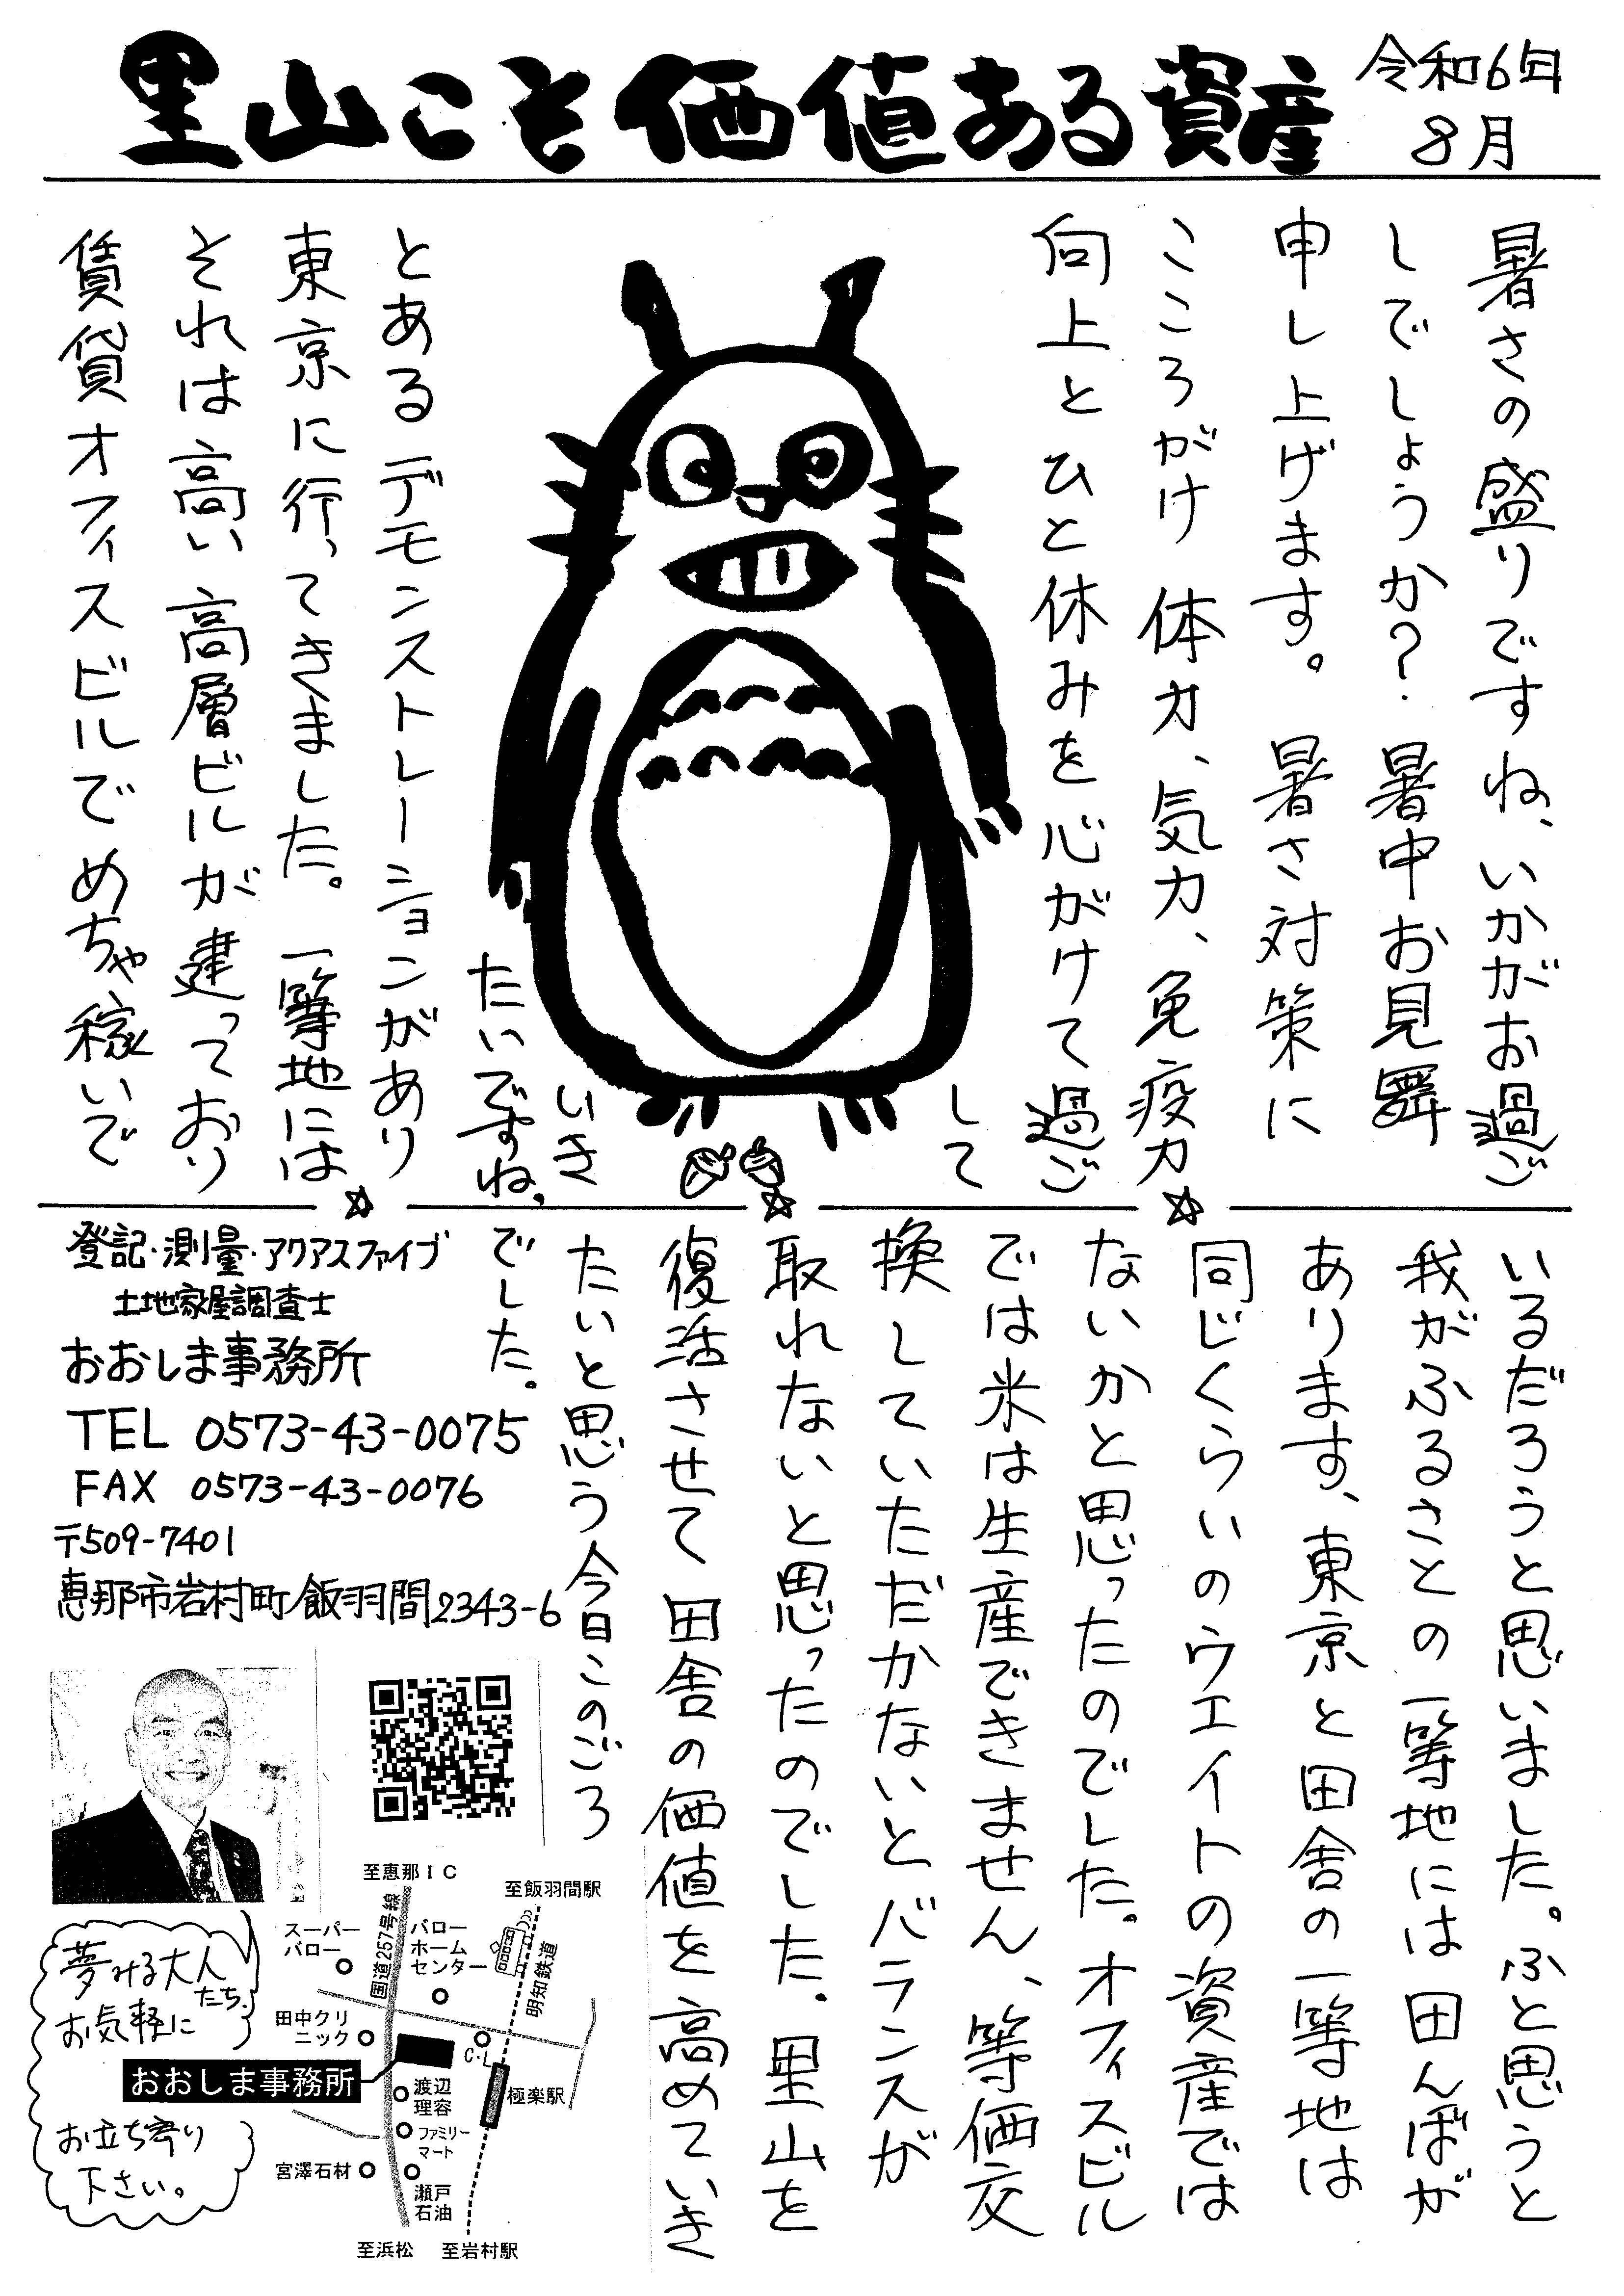 里山こそ価値ある資産
令和6年
8月
暑さの盛りですね、いかがお過ご
しでしょうか?暑中お見舞
申し上げます。暑さ対策に
こころがけ体力、気力、免疫力
向上とひと休みを心がけて過ご
して
いき
たいですね、
とあるデモンストレーションがあり
東京に行ってきました。一等地には
それは高い高層ビルが建っており
賃貸オフィスビルでめちゃ稼いで
いるだろうと思いました。ふと思うと
我がふるさとの一等地には田んぼが
あります、東京と田舎の一等地は
同じくらいのウエイトの資産では
ないかと思ったのでした。オフィスビル
では米は生産できません、等価交
換していただかないとバランスが
取れないと思ったのでした。里山を
復活させて田舎の価値を高めていき
たいと思う今日このごろ
でした。
登記・測量・アクアスファイブ
土地家屋調査士
おおしま事務所
TEL 0573-43-0075
FAX 0573-43-0076
〒509-7401
恵那市岩村町飯羽間2343-6
夢みる大人
たち、
お気軽に
お立ち寄り
下さい。
至恵那IC
至飯羽間駅
国道257号線
スーパー
バロー
バロー
ホーム
センター
明知鉄道
田中クリ
ニック
C・L
おおしま事務所
渡辺
理容
極楽駅
ファミリー
マート
宮澤石材
瀬戸
石油
至浜松
至岩村駅